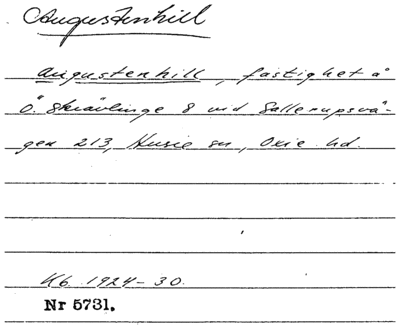 Augustenhill
Augustenhill, fastighet å
Ö. Skrävlinge 8 vid Sallerupsvä-
gen 213, Husie sn, Oxie hd.
Kb. 1924-30.
Nr 5731.